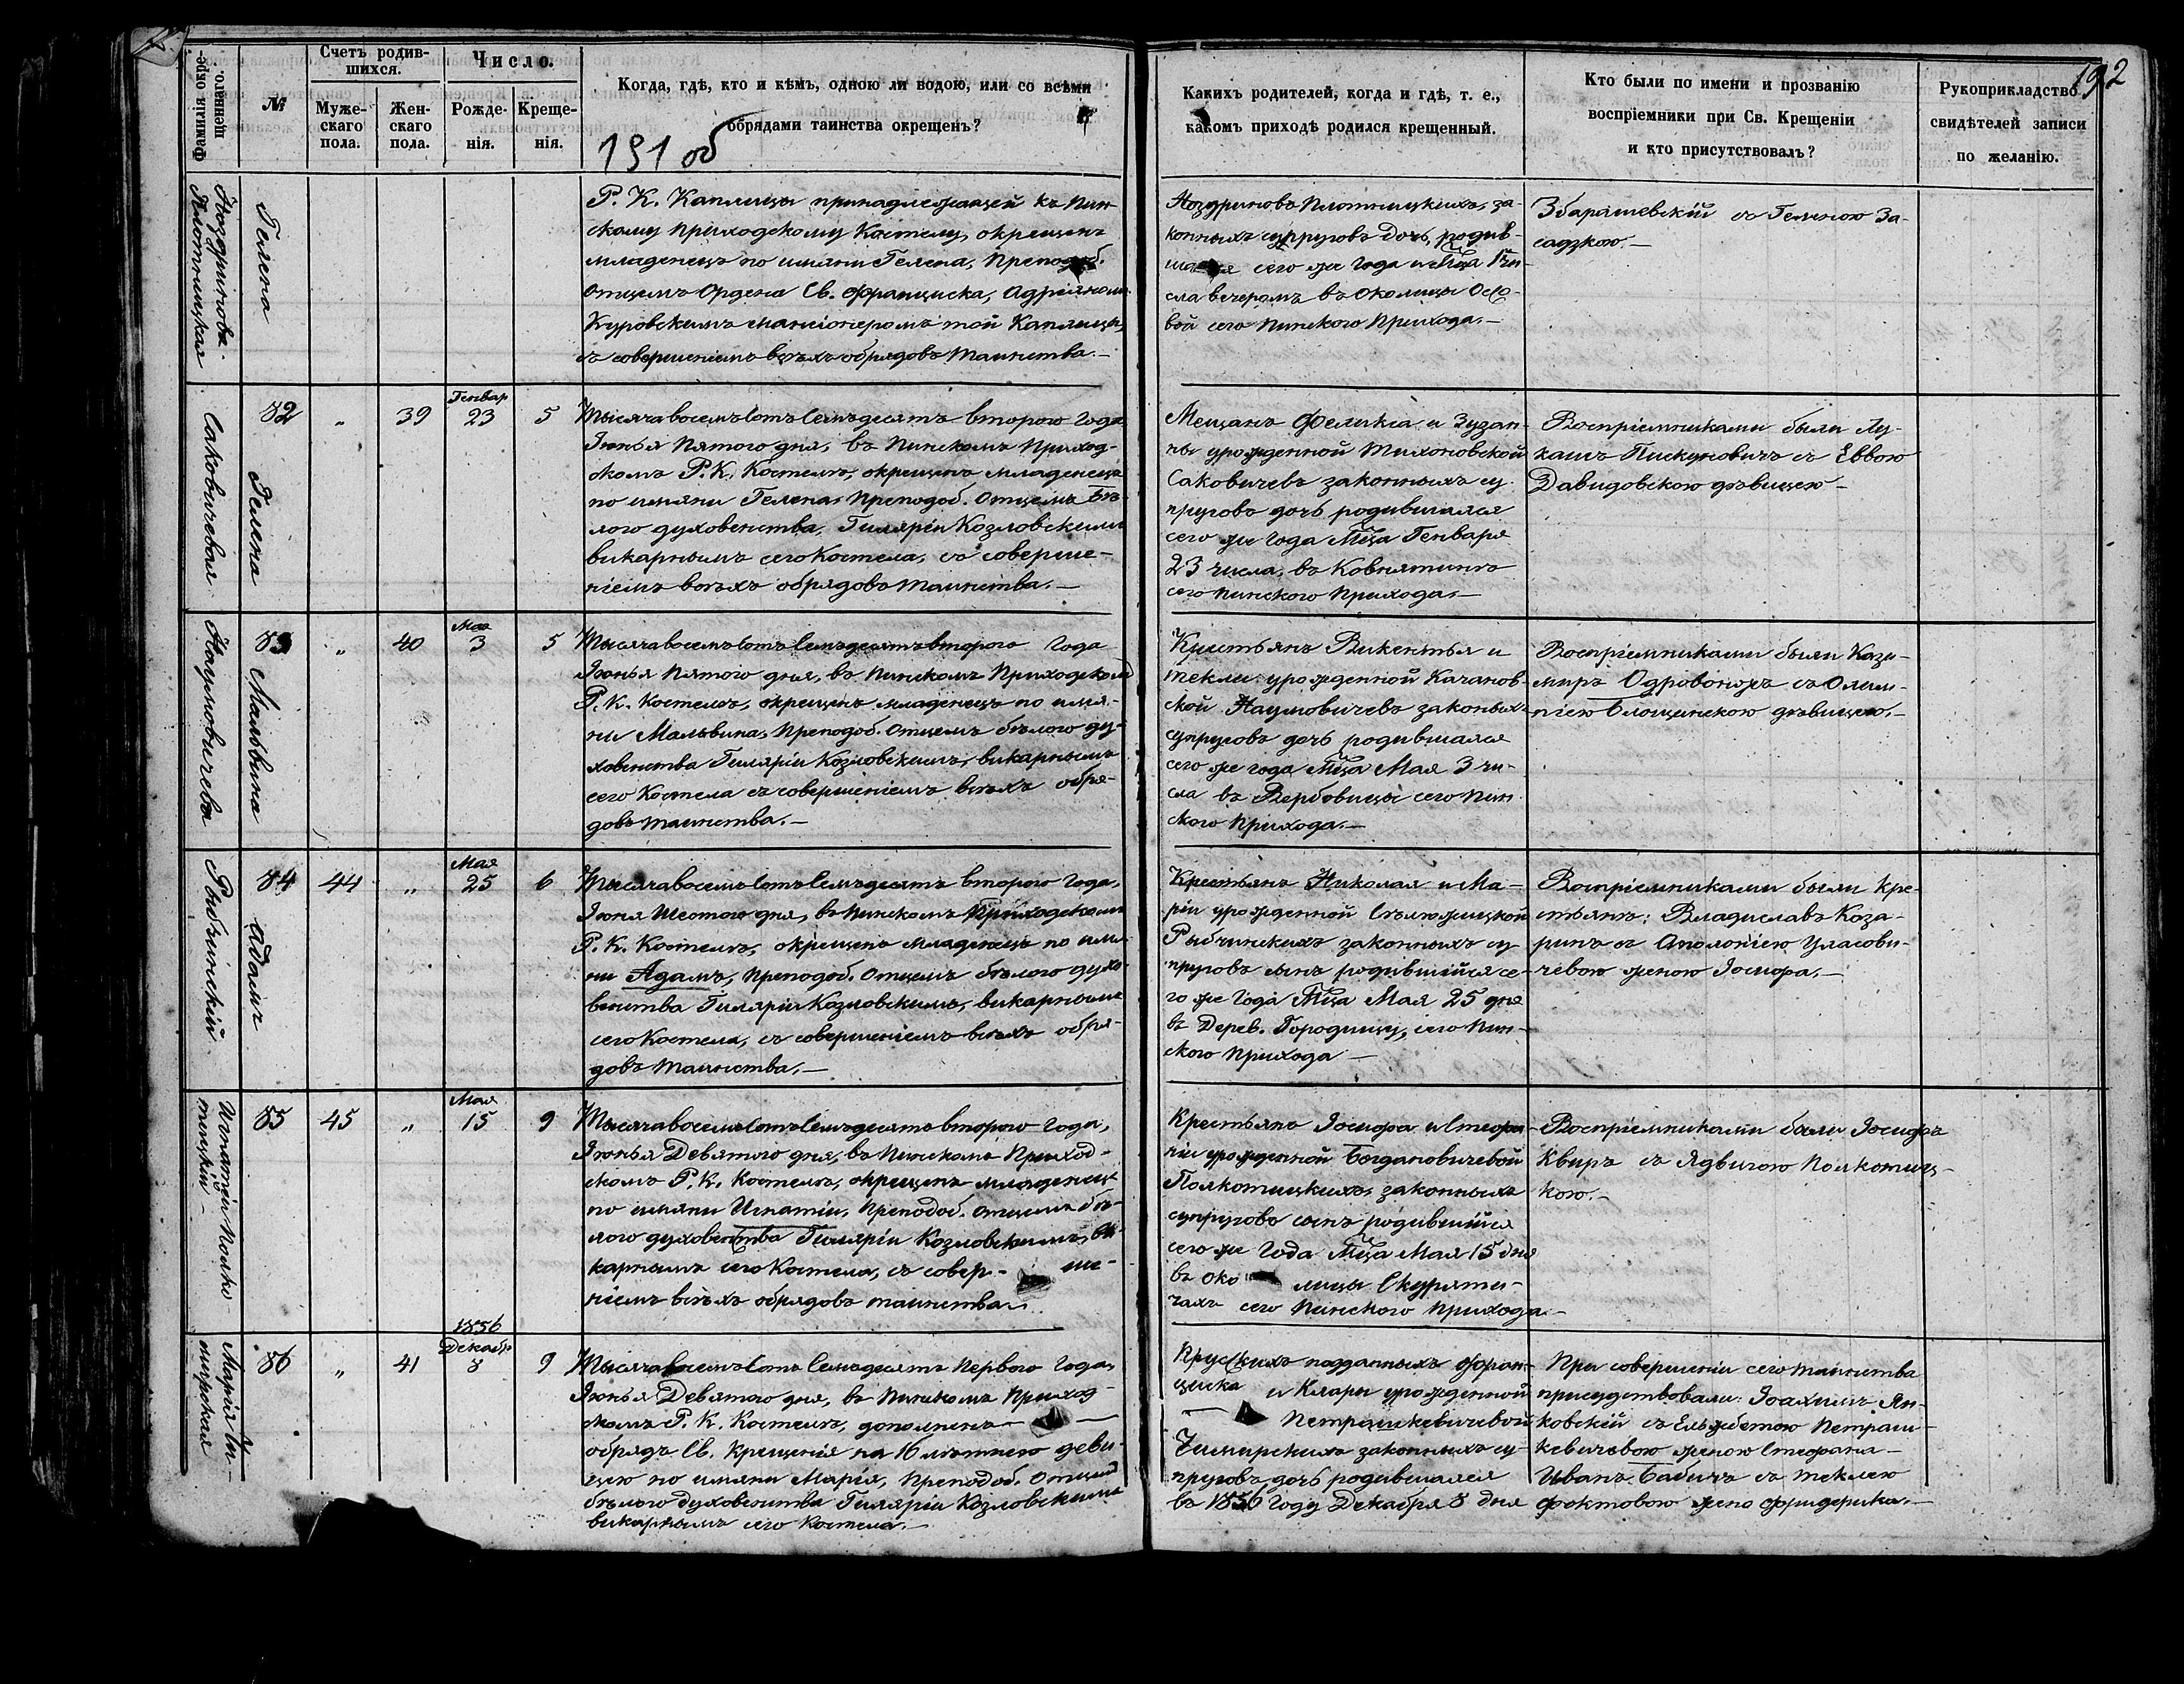 Фамилія окре-
щеннаго.
№
Счетъ родив-
шихся.
Муже-
скаго
пола.
Жен-
скаго
пола.
Число.
Рожде-
нія.
Креще-
нія.
Когда, гдѣ, кто и кѣмъ, одною ли водою, или со всѣми
обрядами таинства окрещенъ?
191 об
Какихъ родителей, когда и гдѣ, т. е.,
какомъ приходѣ родился крещенный.
Кто были по имени и прозванію
воспріемники при Св. Крещеніи
и кто присутствовалъ?
Рукоприкладство
свидѣтелей записи
по желанію.
192
Плотницкая
Гелена
Р. К. Каплицы принадлежащей къ Пин-
скому Приходскому Костелу, окрещенъ
младенецъ по имяни Гелена, Преподоб.
Отцемъ Ордена Св. Франциска, Адріяномъ
Куровскимъ мансіонеромъ той Каплицы,
съ совершеніемъ всѣхъ обрядовъ Таинства.—
Плотницкихъ, за-
конныхъ супруговъ дочь, родив-
сего же года и Мца 1 чи-
сла вечеромъ въ околицы Осо-
вой сего Пинского Прихода.—
Збарашевскій съ Геленою За-
садзкою.—
Саковичевая
82
Гелена
"
39
Генвар
23
5
Тысяча восемъ сотъ семъдесятъ второго года
Іюнья Пятого дня, въ Пинскомъ Приход-
скомъ Р. К. Костелѣ, окрещенъ младенецъ
по имяни Гелена, Преподоб. Отцемъ Бѣ-
лого духовенства, Гиляріи Козловскимъ
викарнымъ сего Костела, съ соверше-
ніемъ всѣхъ обрядовъ Таинства.—
Мещанъ Феликса и Зузан-
ны урожденной Тихоновской
Саковичевъ законныхъ су-
пруговъ дочь родившаяся
сего же года Мца Генваря
23 числа, въ Ковнятинѣ
сего Пинского Прихода.—
Воспріемниками были Лу-
кашъ Пискуновичъ съ Еввою
Давидовскою дѣвицею—
Наумовичева
83
Мальвина
"
40
Мая
3
5
Тысяча восемъ сотъ семъдесятъ второго года
Іюнья Пятого дня, въ Пинскомъ Приходскомъ
Р. К. Костелѣ, окрещенъ младенецъ по имя-
ни Мальвина, Преподоб. Отцемъ бѣлого ду-
ховенства Гиляріи Козловскимъ, викарнымъ
сего Костела съ совершеніемъ всѣхъ обря-
довъ Таинства.—
Крестьянъ Викентья и
Текли урожденной Качанов-
ской Наумовичевъ законыхъ
супруговъ дочь родившаяся
сего же года Мца Мая 3 чи-
сла въ Вербовицы сего Пин-
ского Прихода.—
Воспріемниками были Кази-
миръ Одровонжъ съ Олим-
піею Блощинскою дѣвицею.—
Рыбчинскій
84
Адамъ
44
"
Мая
25
6
Тысяча восемъ сотъ семъдесятъ второго года,
Іюня Шестого дня, въ Пинскомъ Приходскомъ
Р. К. Костелѣ, окрещенъ младенецъ по имя-
ни Адамъ, Преподоб. Отцемъ бѣлого духо-
венства Гиляріи Козловскимъ, викарнымъ
сего Костела, съ совершеніемъ всѣхъ обря-
довъ Таинства.—
Крестьянъ Николая и Ма-
ріи урожденной
Рыбчинскихъ законныхъ су-
пруговъ сынъ родившійся се-
го же года Мца Мая 25 дня
въ Дерев. Городищу, сего Пин-
ского Прихода—
Воспріемниками были Кре-
стьянъ: Владиславъ Коза-
ринъ съ Аполоніею Уласови-
чевою женою Іосифа.—
Игнатій Полко-
тицкій—
85
45
"
Мая
15
9
Тысяча восемъ сотъ семъдесятъ второго года,
Іюнья Девятого дня, въ Пинскомъ Приход-
скомъ Р. К. Костелѣ, окрещенъ младенецъ
по имяни Игнатіи, Преподоб. Отцемъ бѣ-
лого духовенства Гиляріи Козловскимъ, ви-
карнымъ сего Костела, съ совер- ше-
ніемъ всѣхъ обрядовъ таинства.
Крестьянъ Іосифа и Стефа-
ніи урожденной Богдановичевой
Полкотицкихъ, законныхъ
супруговъ сынъ родившійся
сего же года Мца Мая 15 дня
въ око лицы Скурати-
чахъ сего Пинского Прихода.—
Воспріемниками были Іосифъ
Квиръ съ Ядвигою Полкотиц-
кою.—
Марія Чи-
86
"
41
1856
Декабр
8
9
Тысяча восемъ сотъ семъдесятъ Первого года,
Іюнья Девятого дня, въ Пинскомъ Приход-
скомъ Р. К. Костелѣ, дополненъ—
обрядъ Св. Крещенія на 16 лѣтнею деви-
цею по имяни Марія, Преподоб. Отцемъ
бѣлого духовенства Гиляріи Козловскимъ
викарнымъ сего Костела.—
Прусскихъ подданныхъ Фран-
циска и Клары урожденной
Петрашкевичевой
законныхъ су-
пруговъ дочь родившаяся
въ 1856 году Декабря 8 дня
При совершеніи сего таинства
присудствовали: Іоахимъ Ян-
ковскій съ Ельжбетою Петраш-
кевичевою женою Стефана—
Иванъ Бабичъ съ Теклею
Фоктовою жено Фридерика.—